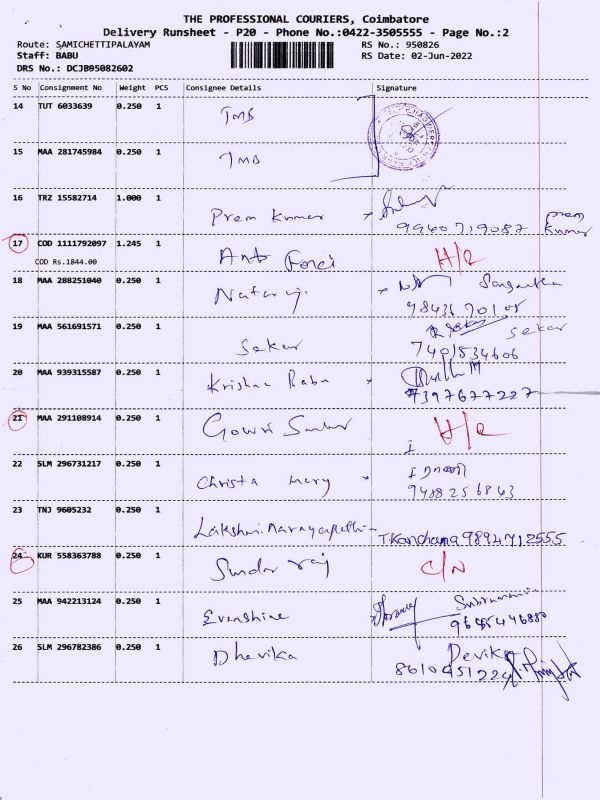 THE PROFESSIONAL COURIERS, Coimbatore
Delivery Runsheet - P20 - Phone No.:0422-3505555 - Page No.:2
Route: SAMICHETTIPALAYAM RS No.: 950826
Staff: BABU RS Date: 02-Jun-2022
DRS No.: DCJB95082602
S No Consignment No Weight PCS Consignee Details Signature
14 TUT 6033639 0.250 1 TMB
15 MAA 281745984 0.250 1 TMB
16 TRZ 15582714 1.000 1 Prem Kumar
9940719087 Prem Kumar
17 COD 1111792097 1.245 1 H/R
COD Rs.1844.00
18 MAA 288251040 0.250 1 Nataraj
19 MAA 561691571 0.250 1 Sekar Sekar
7401534606
20 MAA 939315587 0.250 1 Krishna Babu
7397677227
21 MAA 291108914 0.250 1 Gowri H/R
22 SLM 296731217 0.250 1 Christa Mery
9488256863
23 TNJ 9605232 0.250 1 T.Kanchana 9894712555
24 KUR 558363788 0.250 1 Sundar raj C/N
25 MAA 942213124 0.250 1 Evenshine
26 SLM 296782386 0.250 1 Dhevika Devika
8610451224